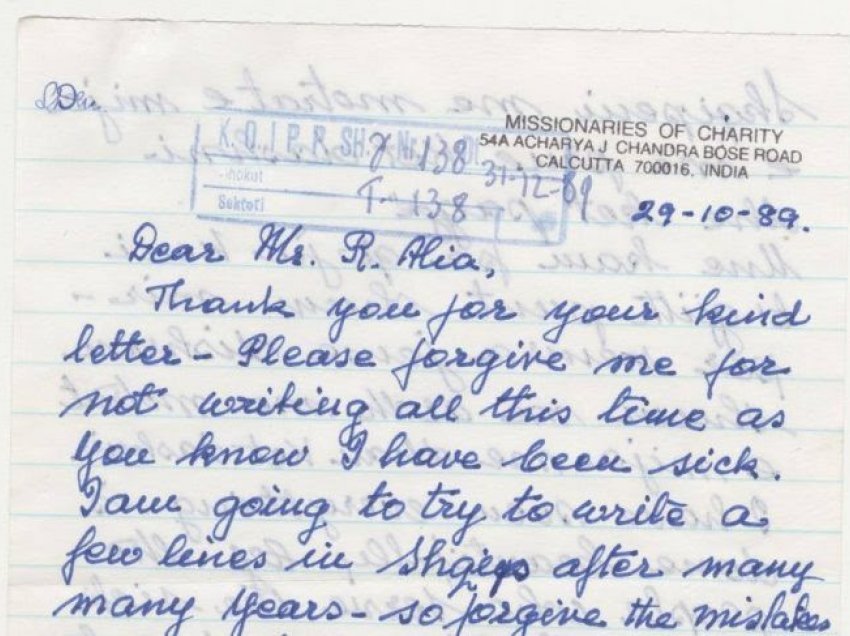 MISSIONARIES OF CHARITY
54A ACHARYA J CHANDRA BOSE ROAD
CALCUTTA 700016, INDIA
K. Q. I P. R. SH. 7 Nr. 138
31-12-89
Sektori T-138
29-10-89.
Dear Mr. R. Alia,
Thank you for your kind
letter - Please forgive me for
not writing all this time as
you know I have been sick.
I am going to try to write a
few lines in Shqip after many
many years - so forgive the mistakes